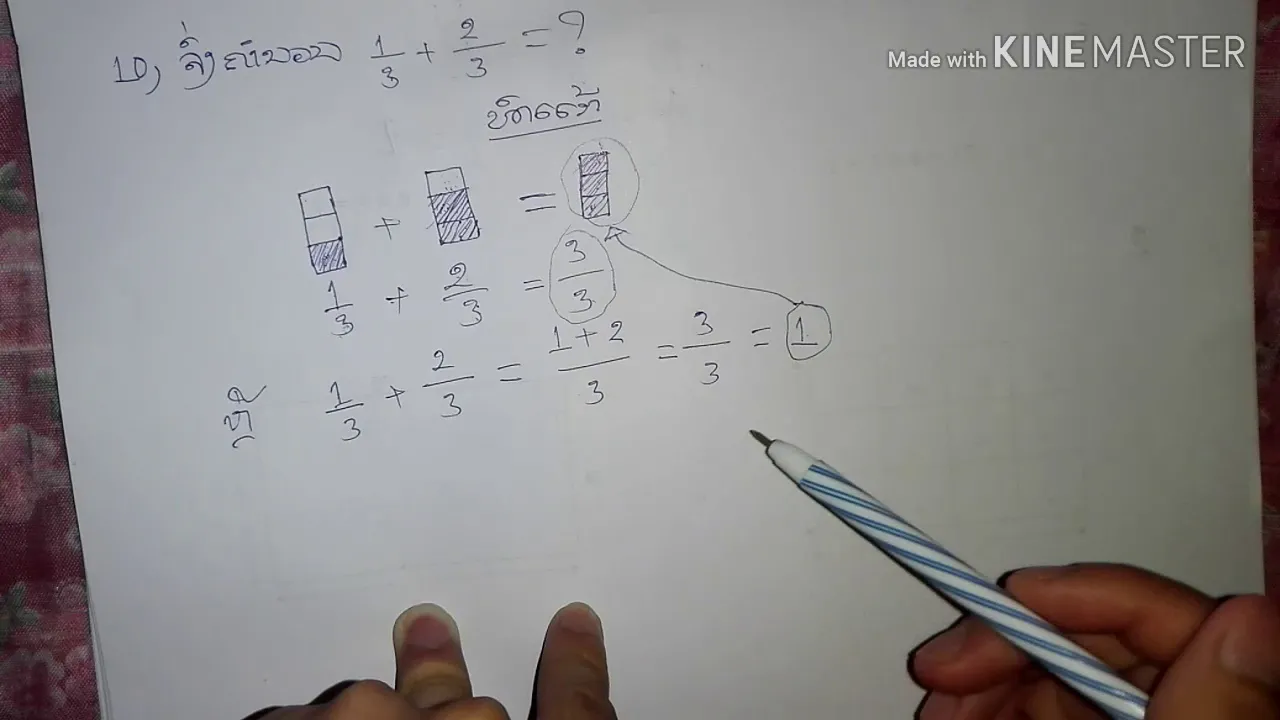 10, ຈົ່ງຄຳນວນ 1/3 + 2/3 = ?
Made with KINEMASTER
ບົດແກ້
+ =
1/3 + 2/3 = 3/3
ຫຼື 1/3 + 2/3 = (1+2)/3 = 3/3 = 1